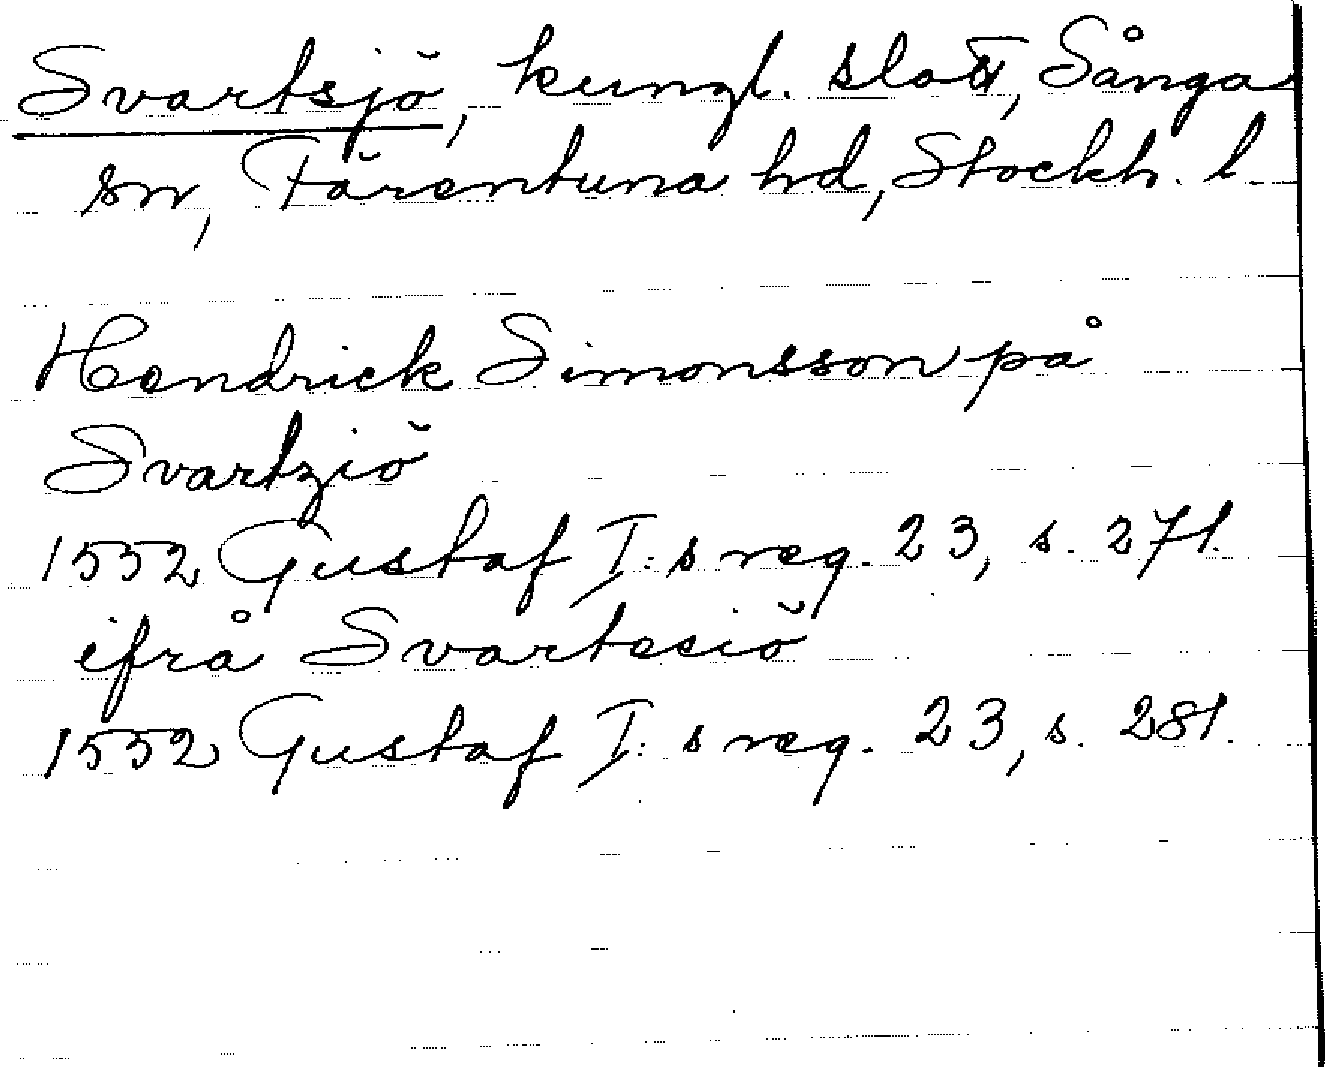 Svartsjö, kungl. slott, Sånga
sn, Färentuna hd, Stockh. l
Hendrick Simonsson på
Svartziö
1552 Gustaf I:s reg. 23, s. 271.
ifrå Svartesiö
1552 Gustaf I:s reg. 23, s. 281.